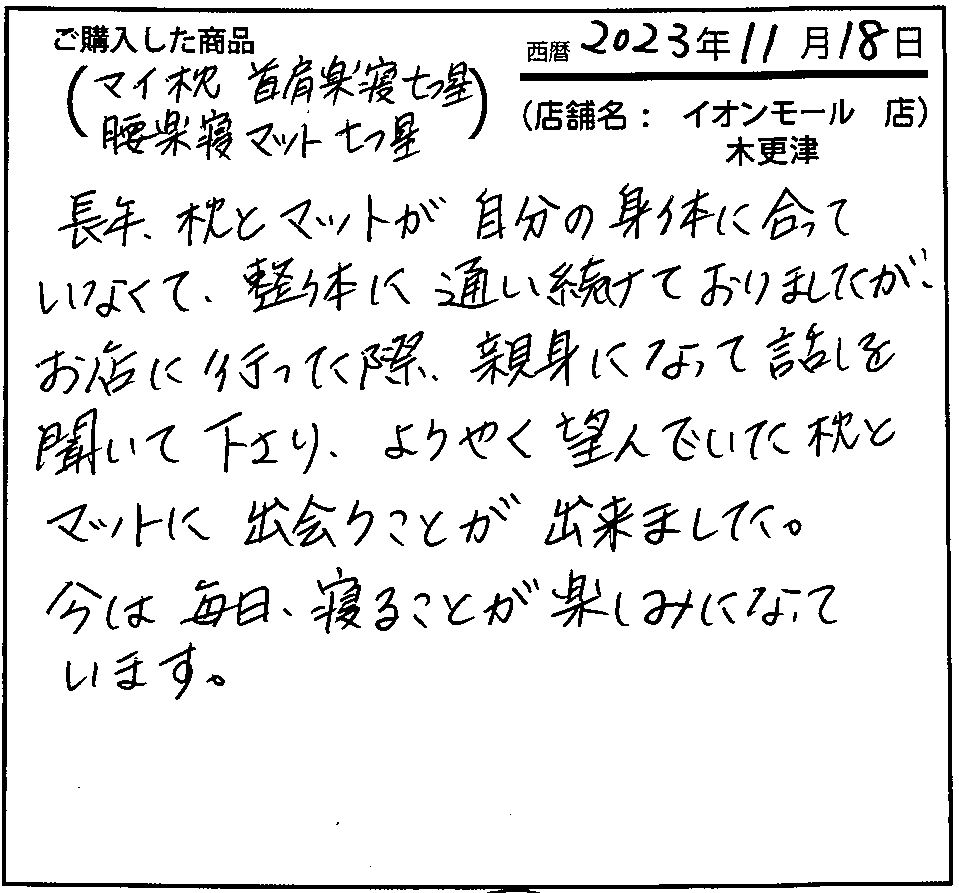 ご購入した商品
西暦 2023年 11月 18日
(マイ枕 首肩楽寝七つ星
腰楽寝マット七つ星)
(店舗名: イオンモール 店)
木更津
長年、枕とマットが自分の身体に合って
いなくて、整体に通い続けておりましたが、
お店に行った際、親身になって話しを
聞いて下さり、ようやく望んでいた枕と
マットに出会うことが出来ました。
今は毎日、寝ることが楽しみになって
います。